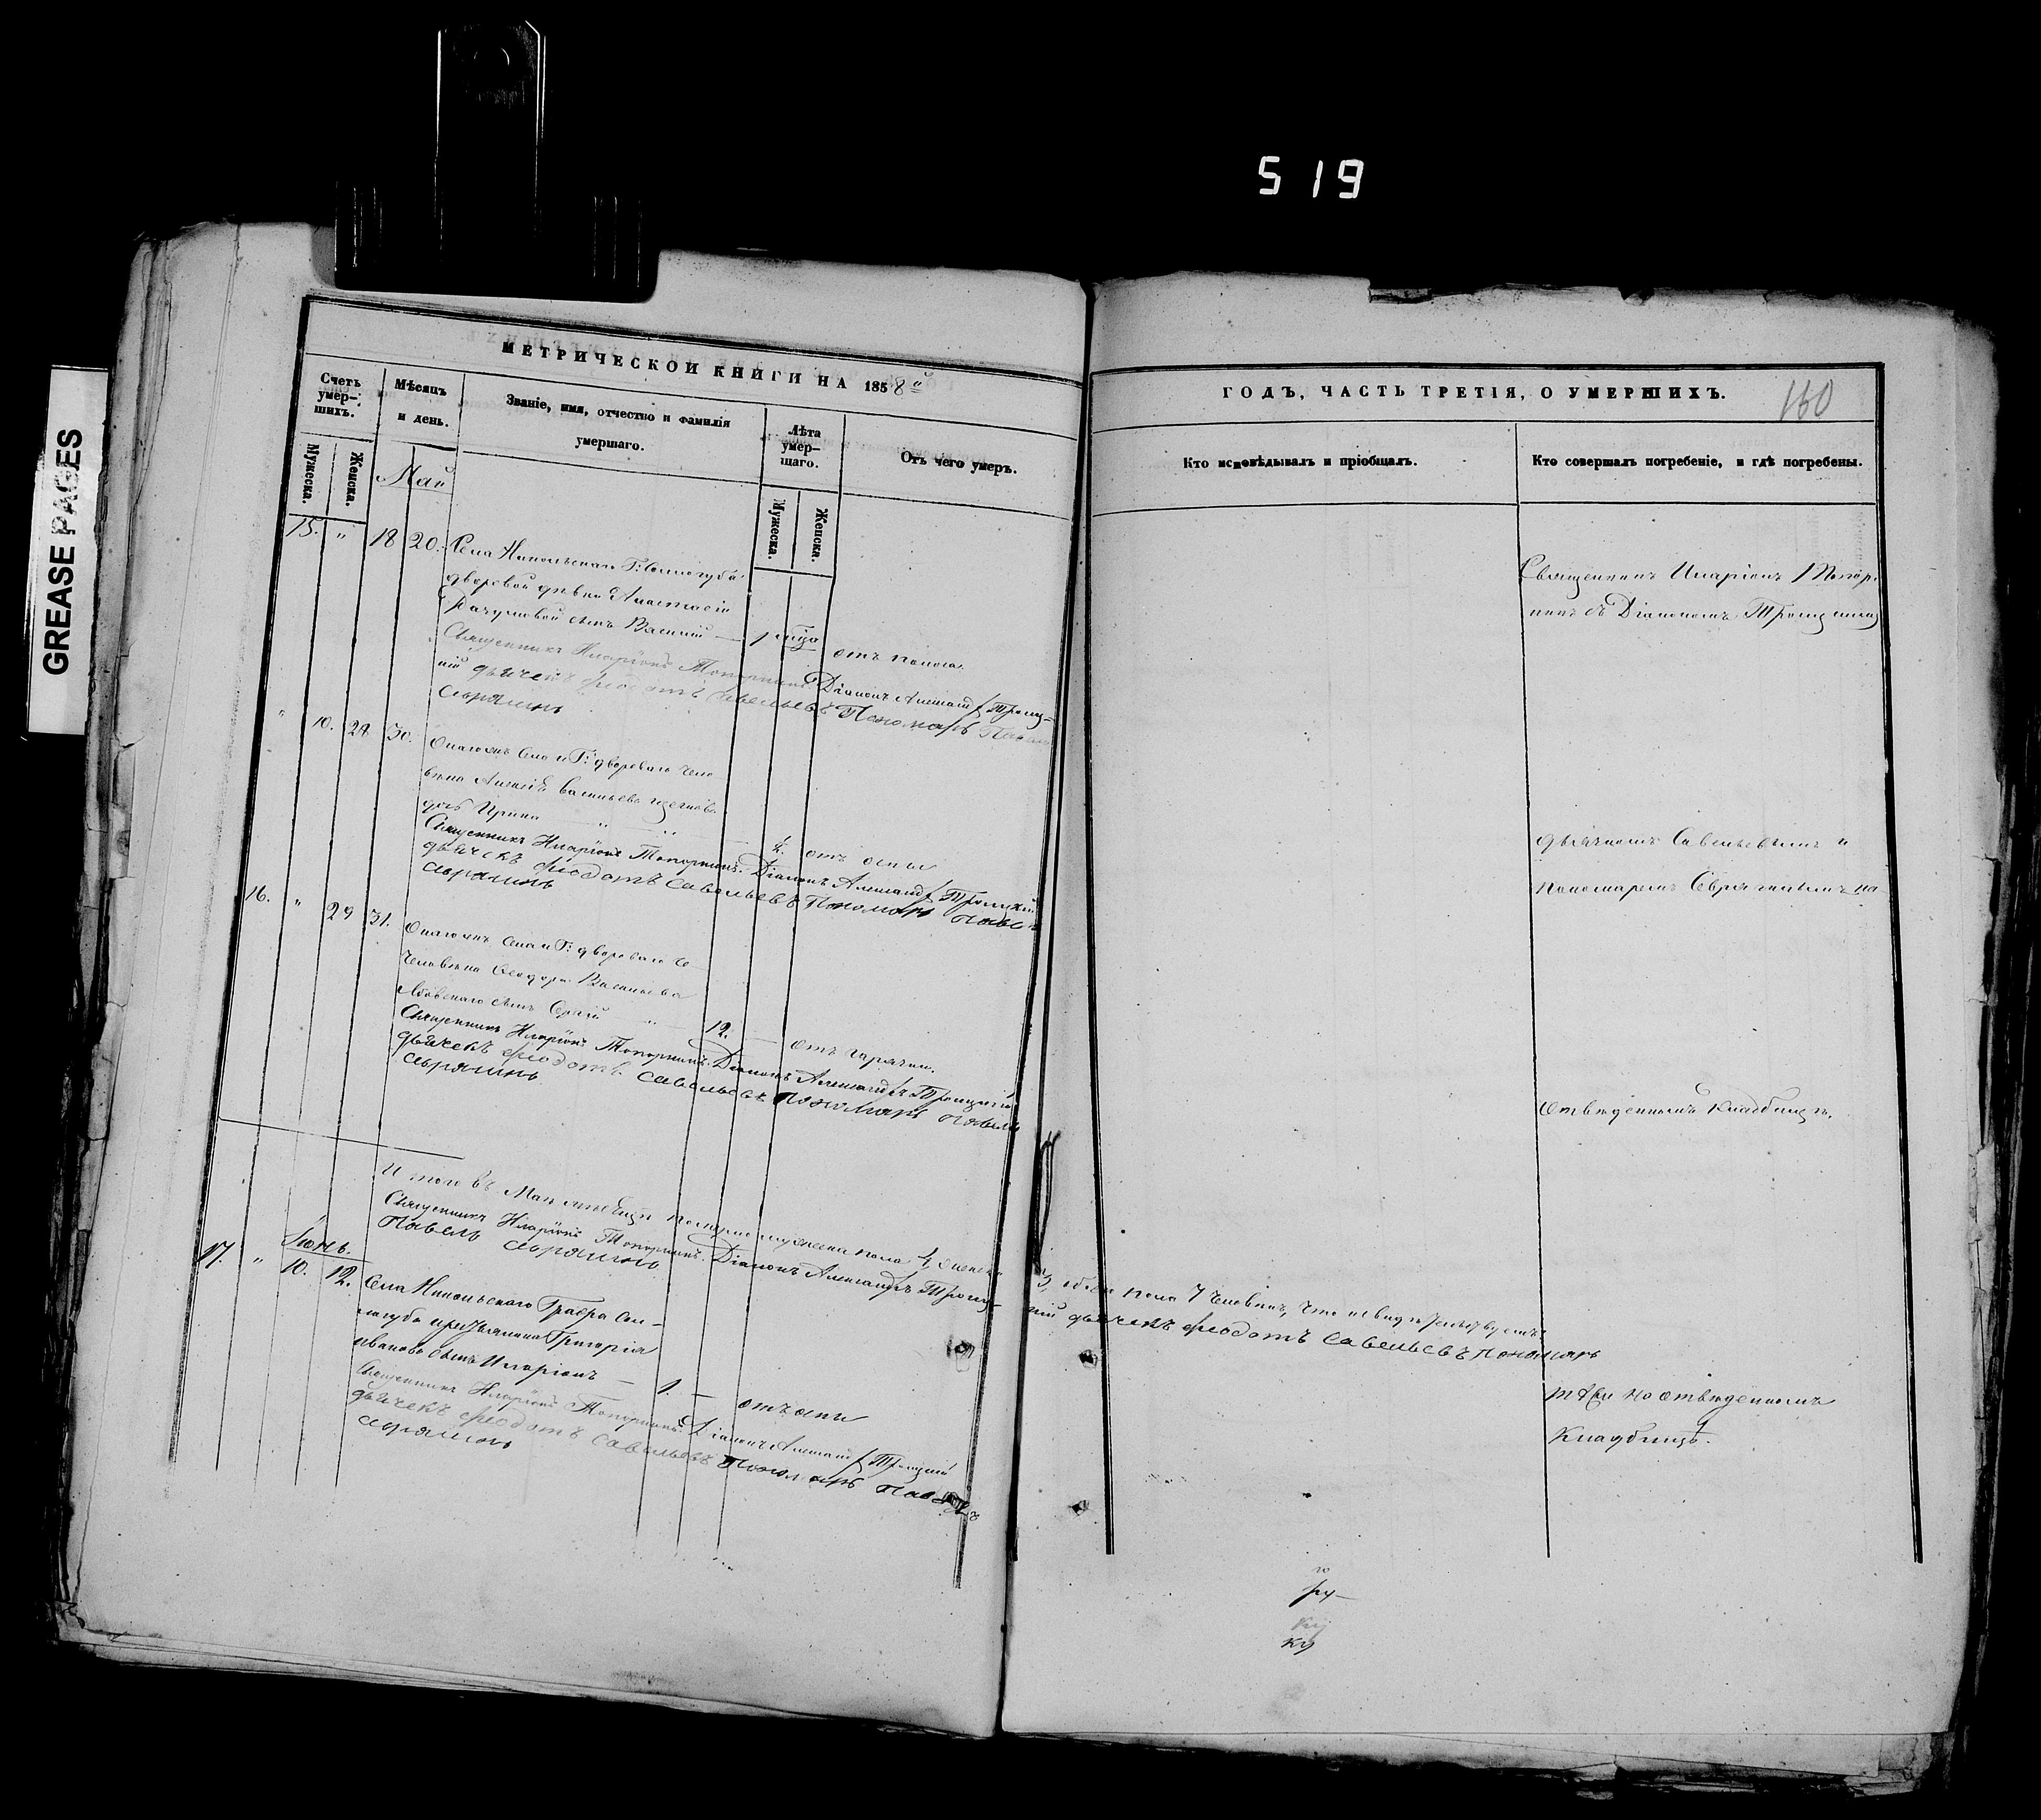 519
GREASE PAGES
МЕТРИЧЕСКОЙ КНИГИ НА 1858й
Счетъ умер-шихъ.
Мѣсяцъ и день.
Званіе, имя, отчество и фамилія умершаго.
Лѣта умер-шаго.
Отъ чего умеръ.
Мужеска.
Женска.
Мужеска.
Женска.
Май
15. " 18 20. Села Никольскаго Г: Соллогуба
дворовой дѣвки Анастасіи
сынъ Василій — 1 отъ поноса
Священникъ Иларіонъ Топорнинъ Діаконъ Александръ Троиц-
кій дьячекъ Ѳеодотъ Савельевъ Пономарь Павелъ
" 10. 29 30. Онагожъ села и Г: двороваго чело
вѣка Алексѣя Васильева
дочь Ирина " " — 4. отъ оспы
Священникъ Иларіонъ Топорнинъ. Діаконъ Александръ Троицкій
дьячекъ Ѳеодотъ Савельевъ Пономарь Павелъ
16. " 29 31. Онагожъ села и Г: двороваго че
человѣка Ѳеодора Васильева
сынъ Сергій " 12. — отъ горячки.
Священникъ Иларіонъ Топорнинъ. Діаконъ Александръ Троицкій
дьячекъ Ѳеодотъ Савельевъ Пономарь Павелъ
Итого въ Маѣ мѣсяцѣ померло мужеска пола 4, женска
Священникъ Иларіонъ Топорнинъ. Діаконъ Александръ Троиц-
Павелъ
Іюнь.
17. " 10. 12. Села Никольскаго Графа Сол-
логуба крестьянина Григорія
Иванова сынъ Иларіонъ — 1. — отъ оспы
Священникъ Иларіонъ Топорнинъ. Діаконъ Александръ Троицкій
дьячекъ Ѳеодотъ Савельевъ Пономарь Павелъ
ГОДЪ, ЧАСТЬ ТРЕТІЯ, О УМЕРШИХЪ.
160
Кто исповѣдывалъ и пріобщалъ.
Кто совершалъ погребеніе, и гдѣ погребены.
Священникъ Иларіонъ Топор-
нинъ съ Діакономъ Троицкимъ
дьячкомъ Савельевымъ и
Пономаремъ на
отведенномъ кладбищѣ.
3, обоего пола 7 человѣкъ, что и свидѣтельствуемъ:
кій дьячекъ Ѳеодотъ Савельевъ Пономарь
на отведенномъ
кладбищѣ.